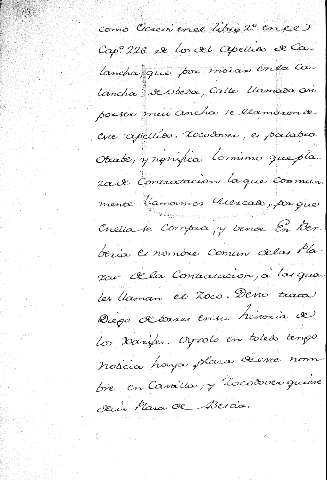 como Escrivi en el libro 2º en el
Capº 226 de los del Apellido de Ca-
lancha, que por morar en la Ca-
lancha de Ubeda, Calle llamada asi
por ser mui ancha se llamaron de
este apellido. Zocodover, es palabra
Arabe, y significa lo mismo que pla-
za de Contratacion la que comun-
mente llamamos Mercado, porque
en ella se compra, y vende. En Ber-
beria es nombre comun de las Pla-
zas de la Contratacion, a las qua-
les llaman el Zoco. De esto trata
Diego de torres en su historia de
los Xarifes. solo en toledo tengo
noticia haya plaza de este nom-
bre en Castilla, y Zocodover quiere
decir Plaza de Bestias.